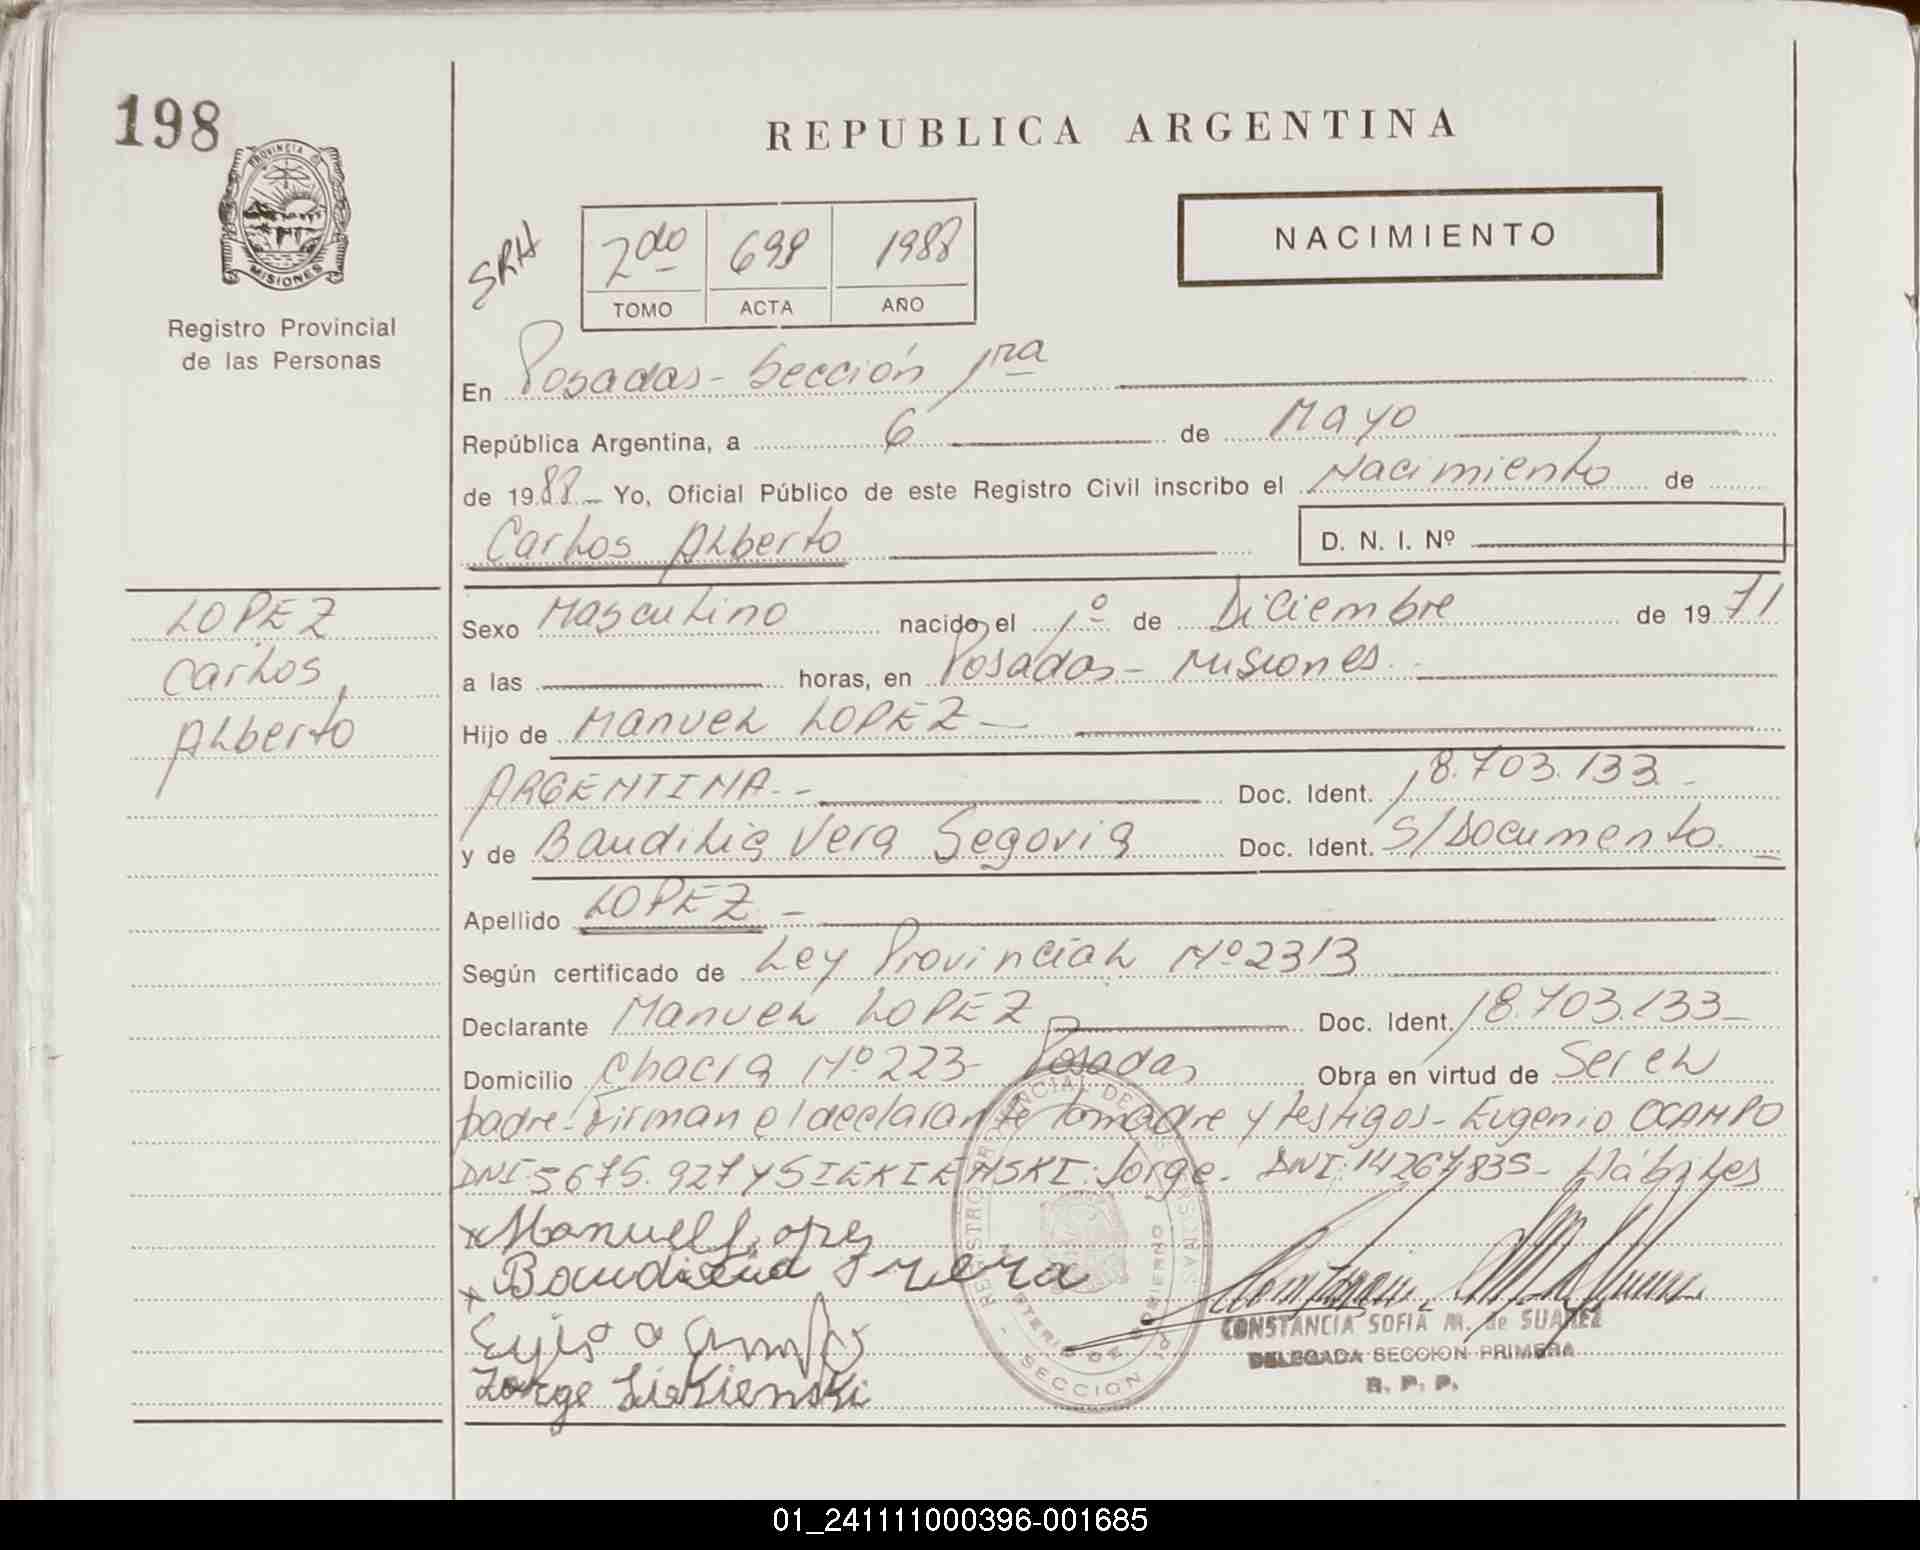 198
PROVINCIA D
MISIONES
Registro Provincial
de las Personas
REPUBLICA ARGENTINA
NACIMIENTO
SRH
2do 698 1988
TOMO ACTA AÑO
En Posadas - Sección 1ra
República Argentina, a 6 de Mayo
de 1988 Yo, Oficial Público de este Registro Civil inscribo el Nacimiento de
Carlos Alberto D. N. I. Nº
LOPEZ
Carlos
Alberto
Sexo Masculino nacido el 1º de Diciembre de 1971
a las horas, en Posadas - Misiones.
Hijo de Manuel LOPEZ -
ARGENTINA. - Doc. Ident. 18.703.133 -
y de Baudilia Vera Segovia Doc. Ident. S/Documento. -
Apellido LOPEZ -
Según certificado de Ley Provincial Nº 2313
Declarante Manuel LOPEZ Doc. Ident. 18.703.133 -
Domicilio Chacra Nº 223 - Posadas Obra en virtud de Ser el
padre - Firman el declarante la madre y testigos - Eugenio OCAMPO
DNI. 5675.927 y SIEKIENSKI. Jorge. DNI: 14267.835 - Hábiles
x Manuel Lopez
x Baudilia Vera
Ocampo
Jorge Siekienski
REGISTRO PROVINCIAL DE LAS PERSONAS
MINISTERIO DE GOBIERNO
- SECCION 1º
CONSTANCIA SOFIA M. de SUAREZ
DELEGADA SECCION PRIMERA
R. P. P.
01_241111000396-001685